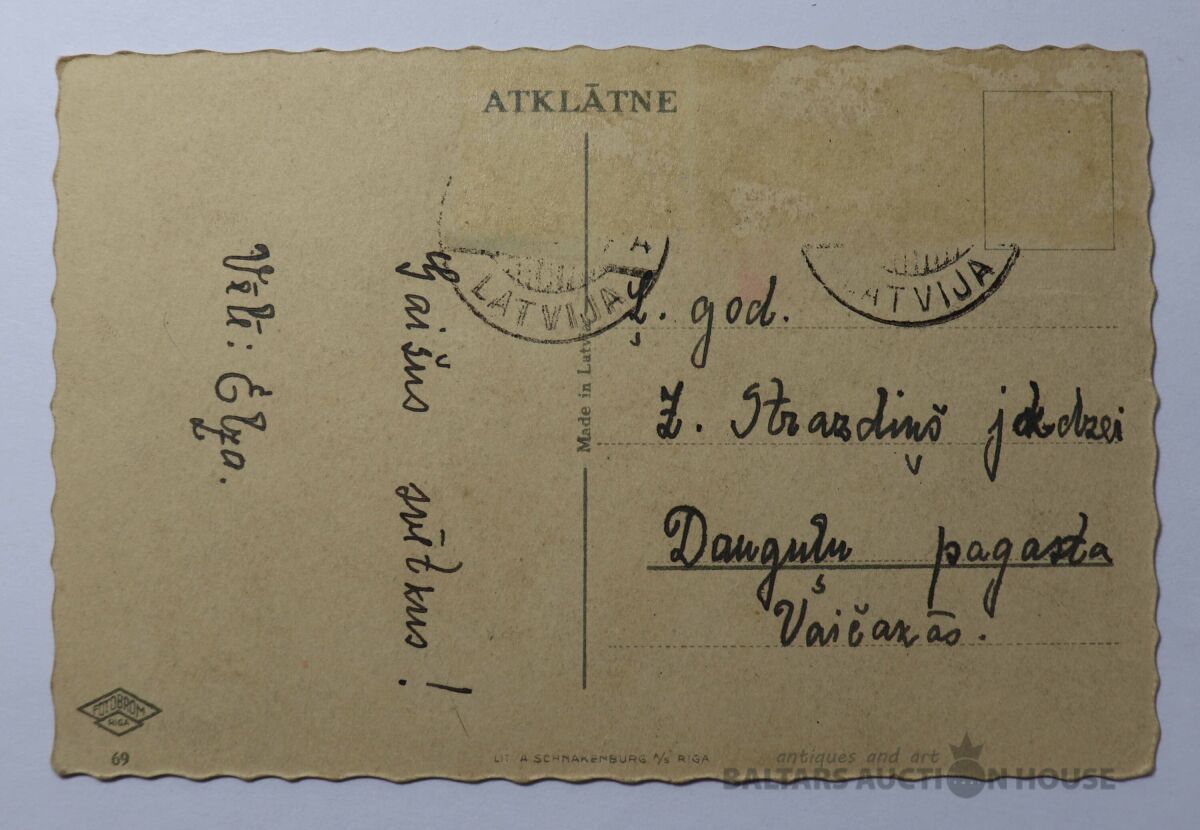 ATKLĀTNE
LATVIJA
LATVIJA
Gaišus svētkus!
Vēlī: Elza.
Made in Latvia
Ļ. god.
Z. Strazdiņš jkdzei
Dauguļu pagasta
Vaičaxās.
FOTOBROM
RIGA
69
A SCHNAKENBURG A/S RIGA
antiques and art
BALTARS AUCTION HOUSE